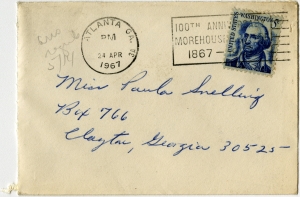 ATLANTA GA.
PM
24 APR
1967
100TH ANNI
MOREHOUSE
1867-
UNITED STATES
WASHINGTON
5/4
Miss Paula Snelling
Box 766
Clayton, Georgia 30525